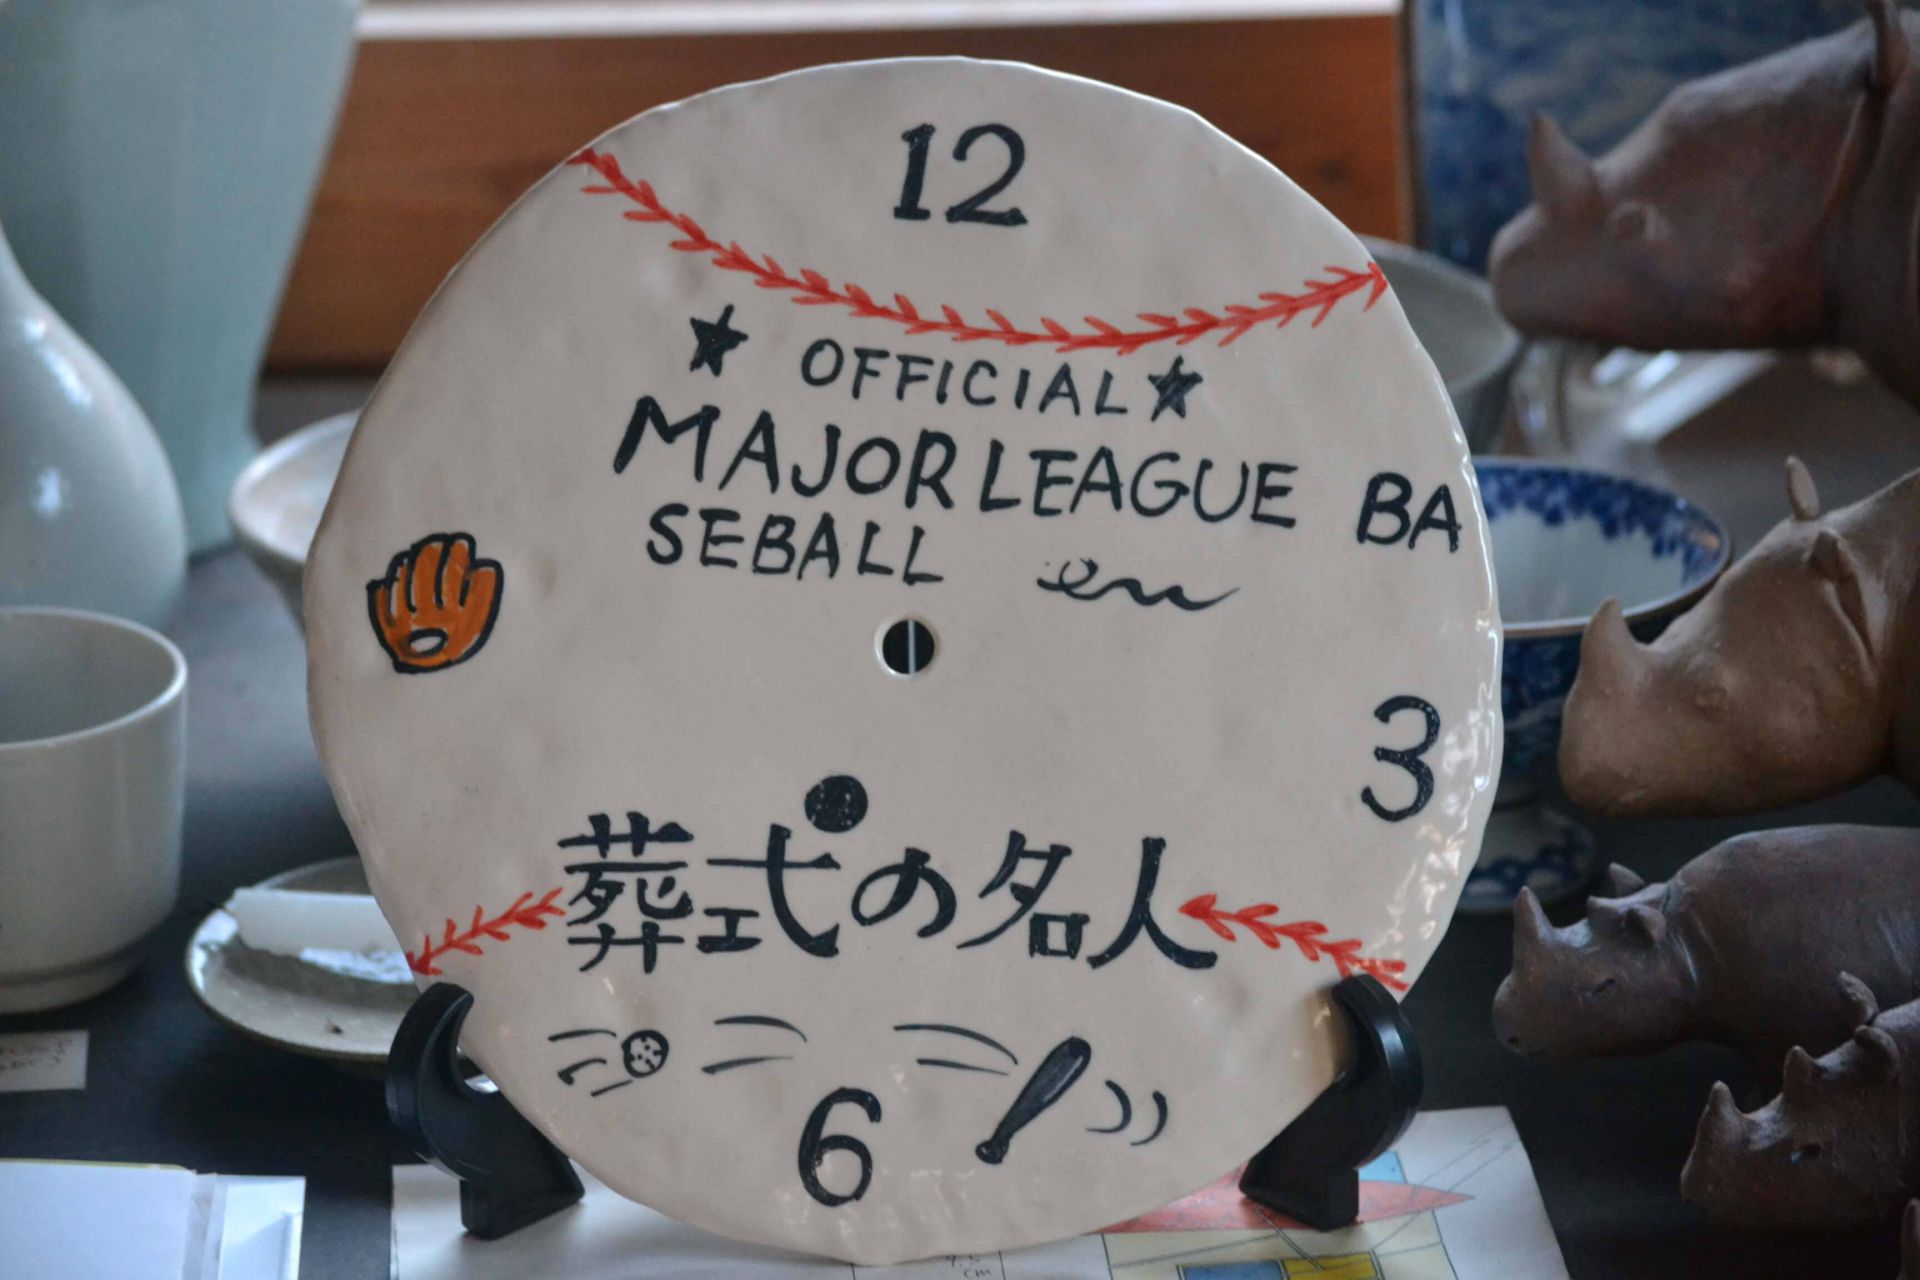 12
★ OFFICIAL ★
MAJOR LEAGUE BA
SEBALL
3
葬式の名人
6
cm